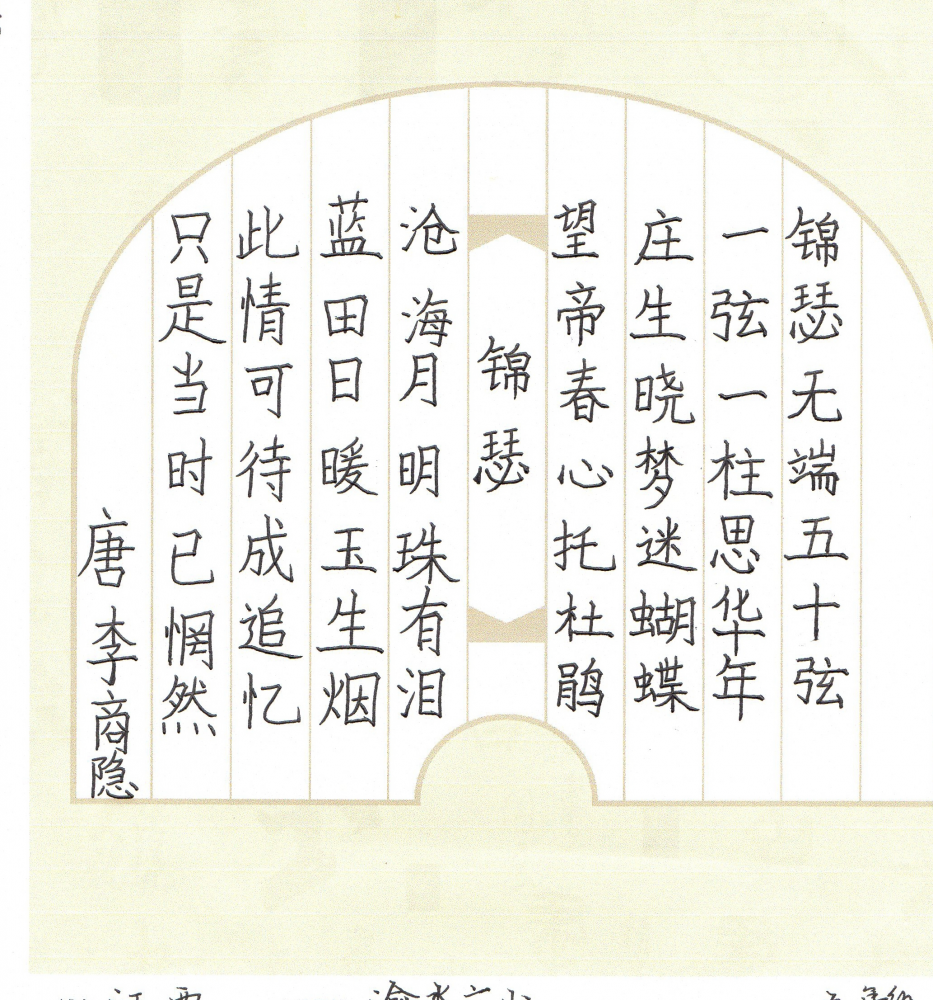 锦瑟无端五十弦
一弦一柱思华年
庄生晓梦迷蝴蝶
望帝春心托杜鹃
锦瑟
沧海月明珠有泪
蓝田日暖玉生烟
此情可待成追忆
只是当时已惘然
唐李商隐